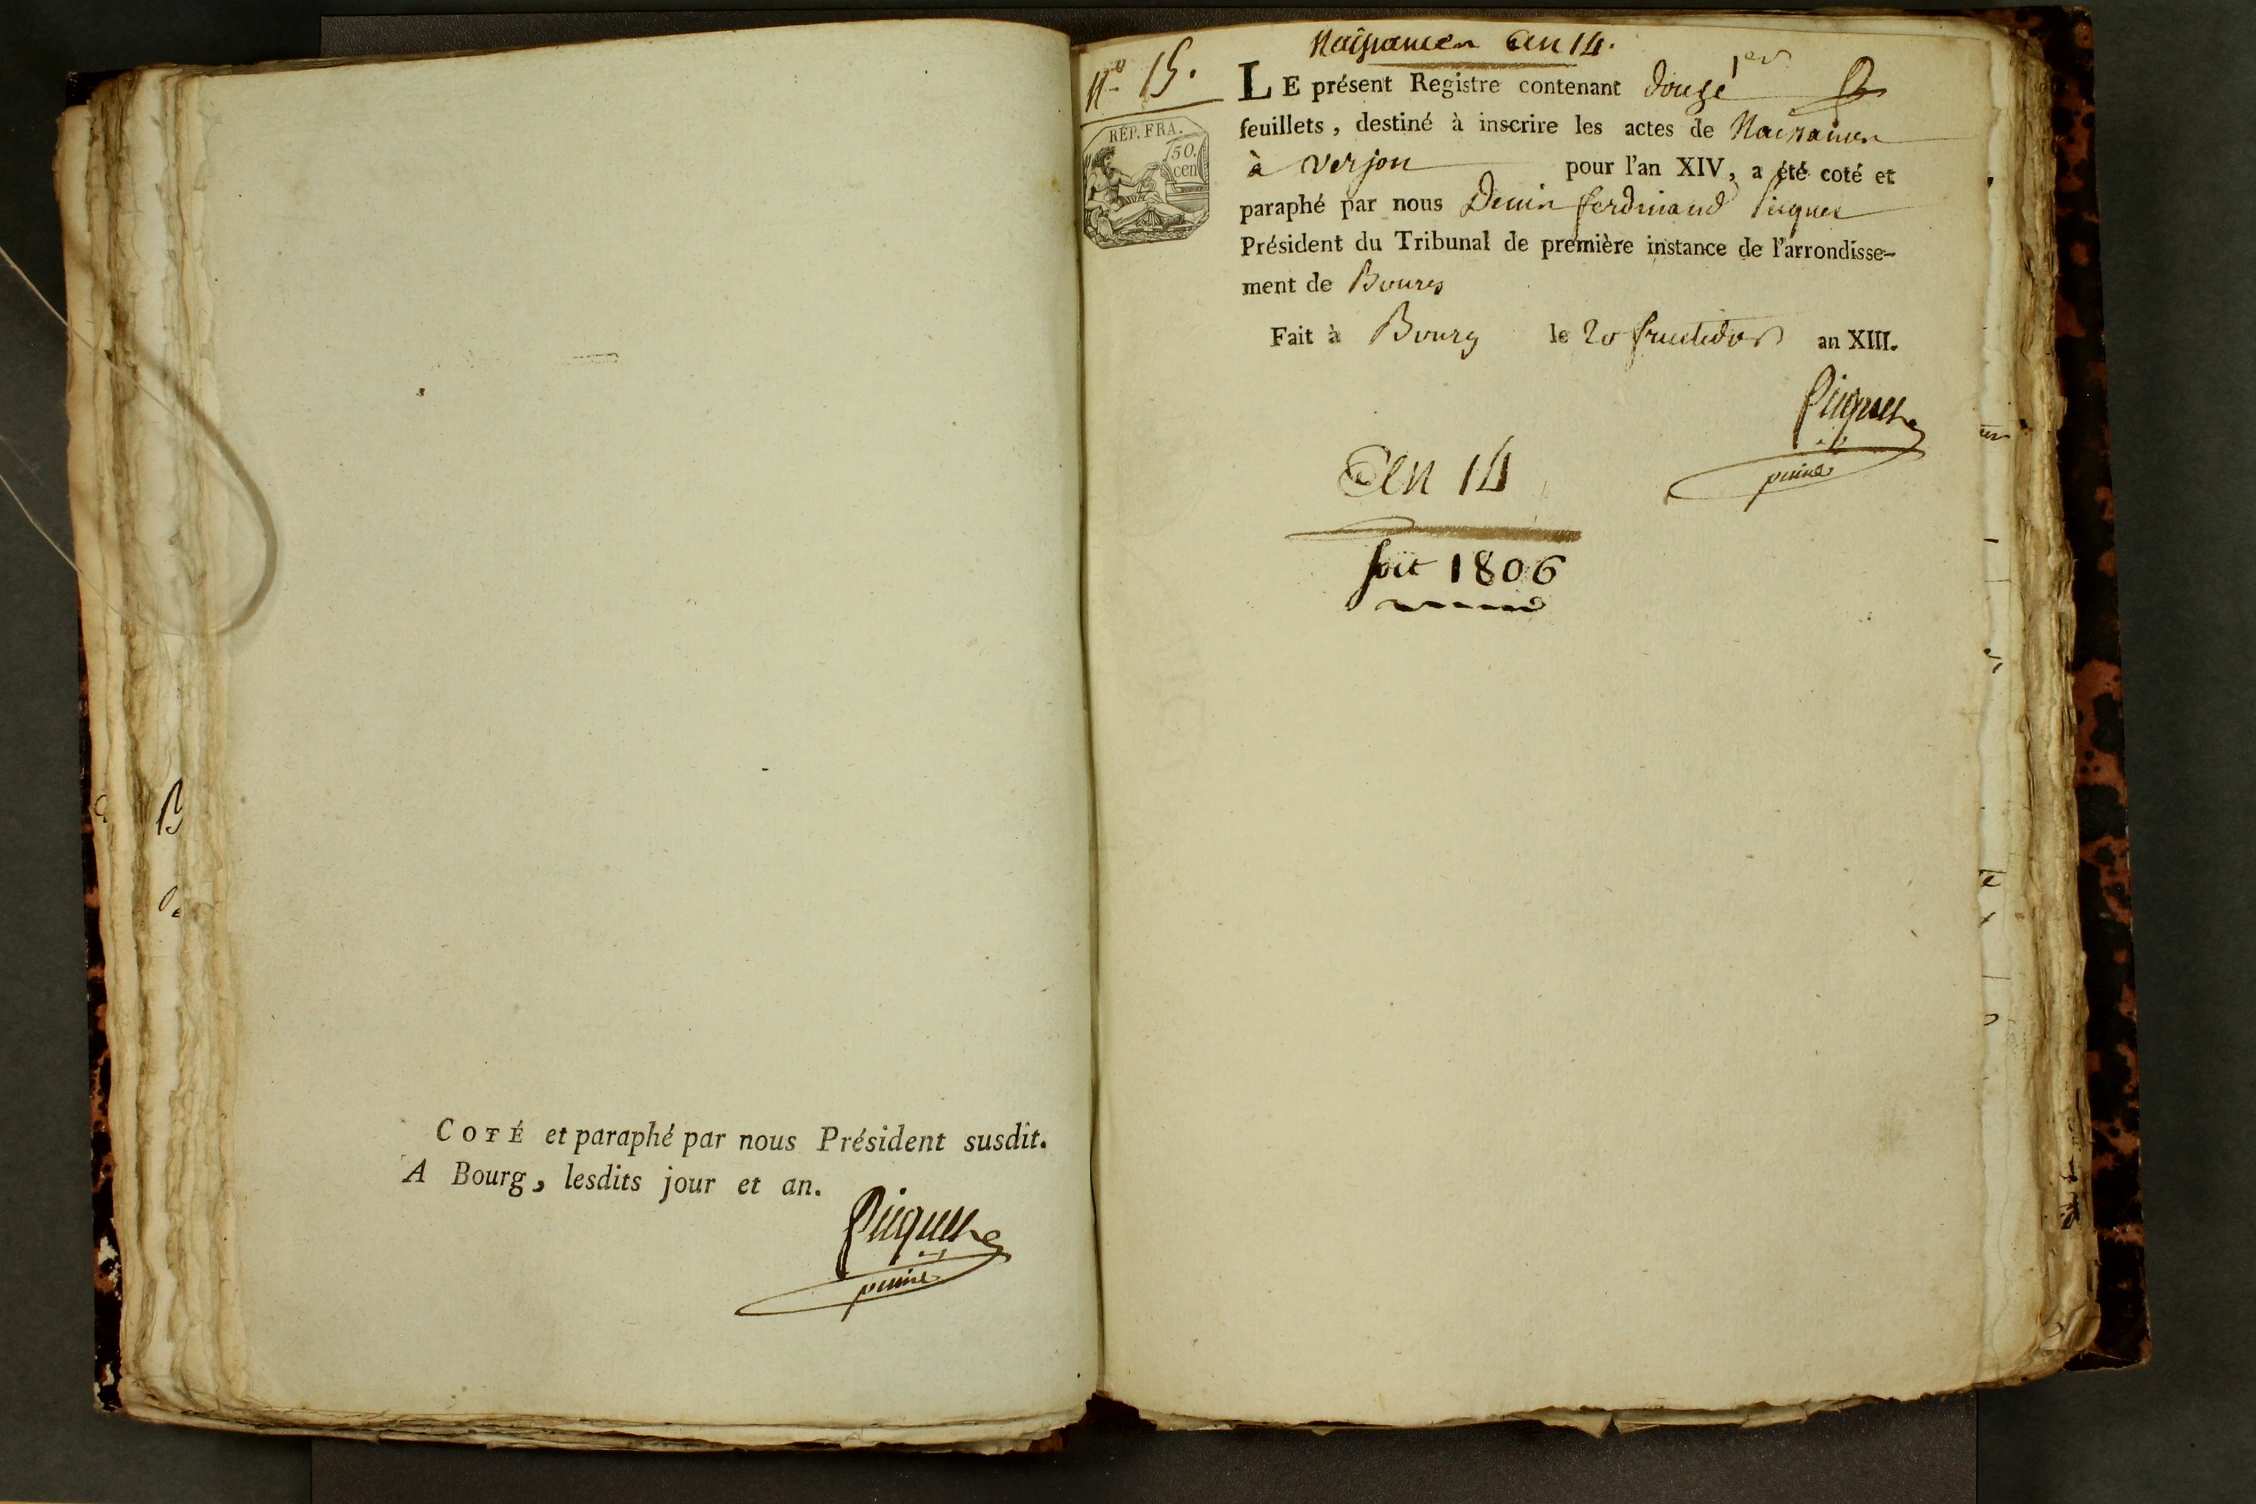 COTÉ et paraphé par nous Président susdit.
A Bourg, lesdits jour et an.
Picquet
puiné
Naissances an 14.
N.º 15.
RÉP. FRA.
50.
cen
1er
LE présent Registre contenant douze
feuillets, destiné à inscrire les actes de Naissances
à verjon pour l'an XIV, a été coté et
paraphé par nous Denis ferdinand Picquet
Président du Tribunal de première instance de l'arrondisse-
ment de Bourg
Fait à Bourg le 20 fructidor an XIII.
Picquet
puiné
an 14
soit 1806